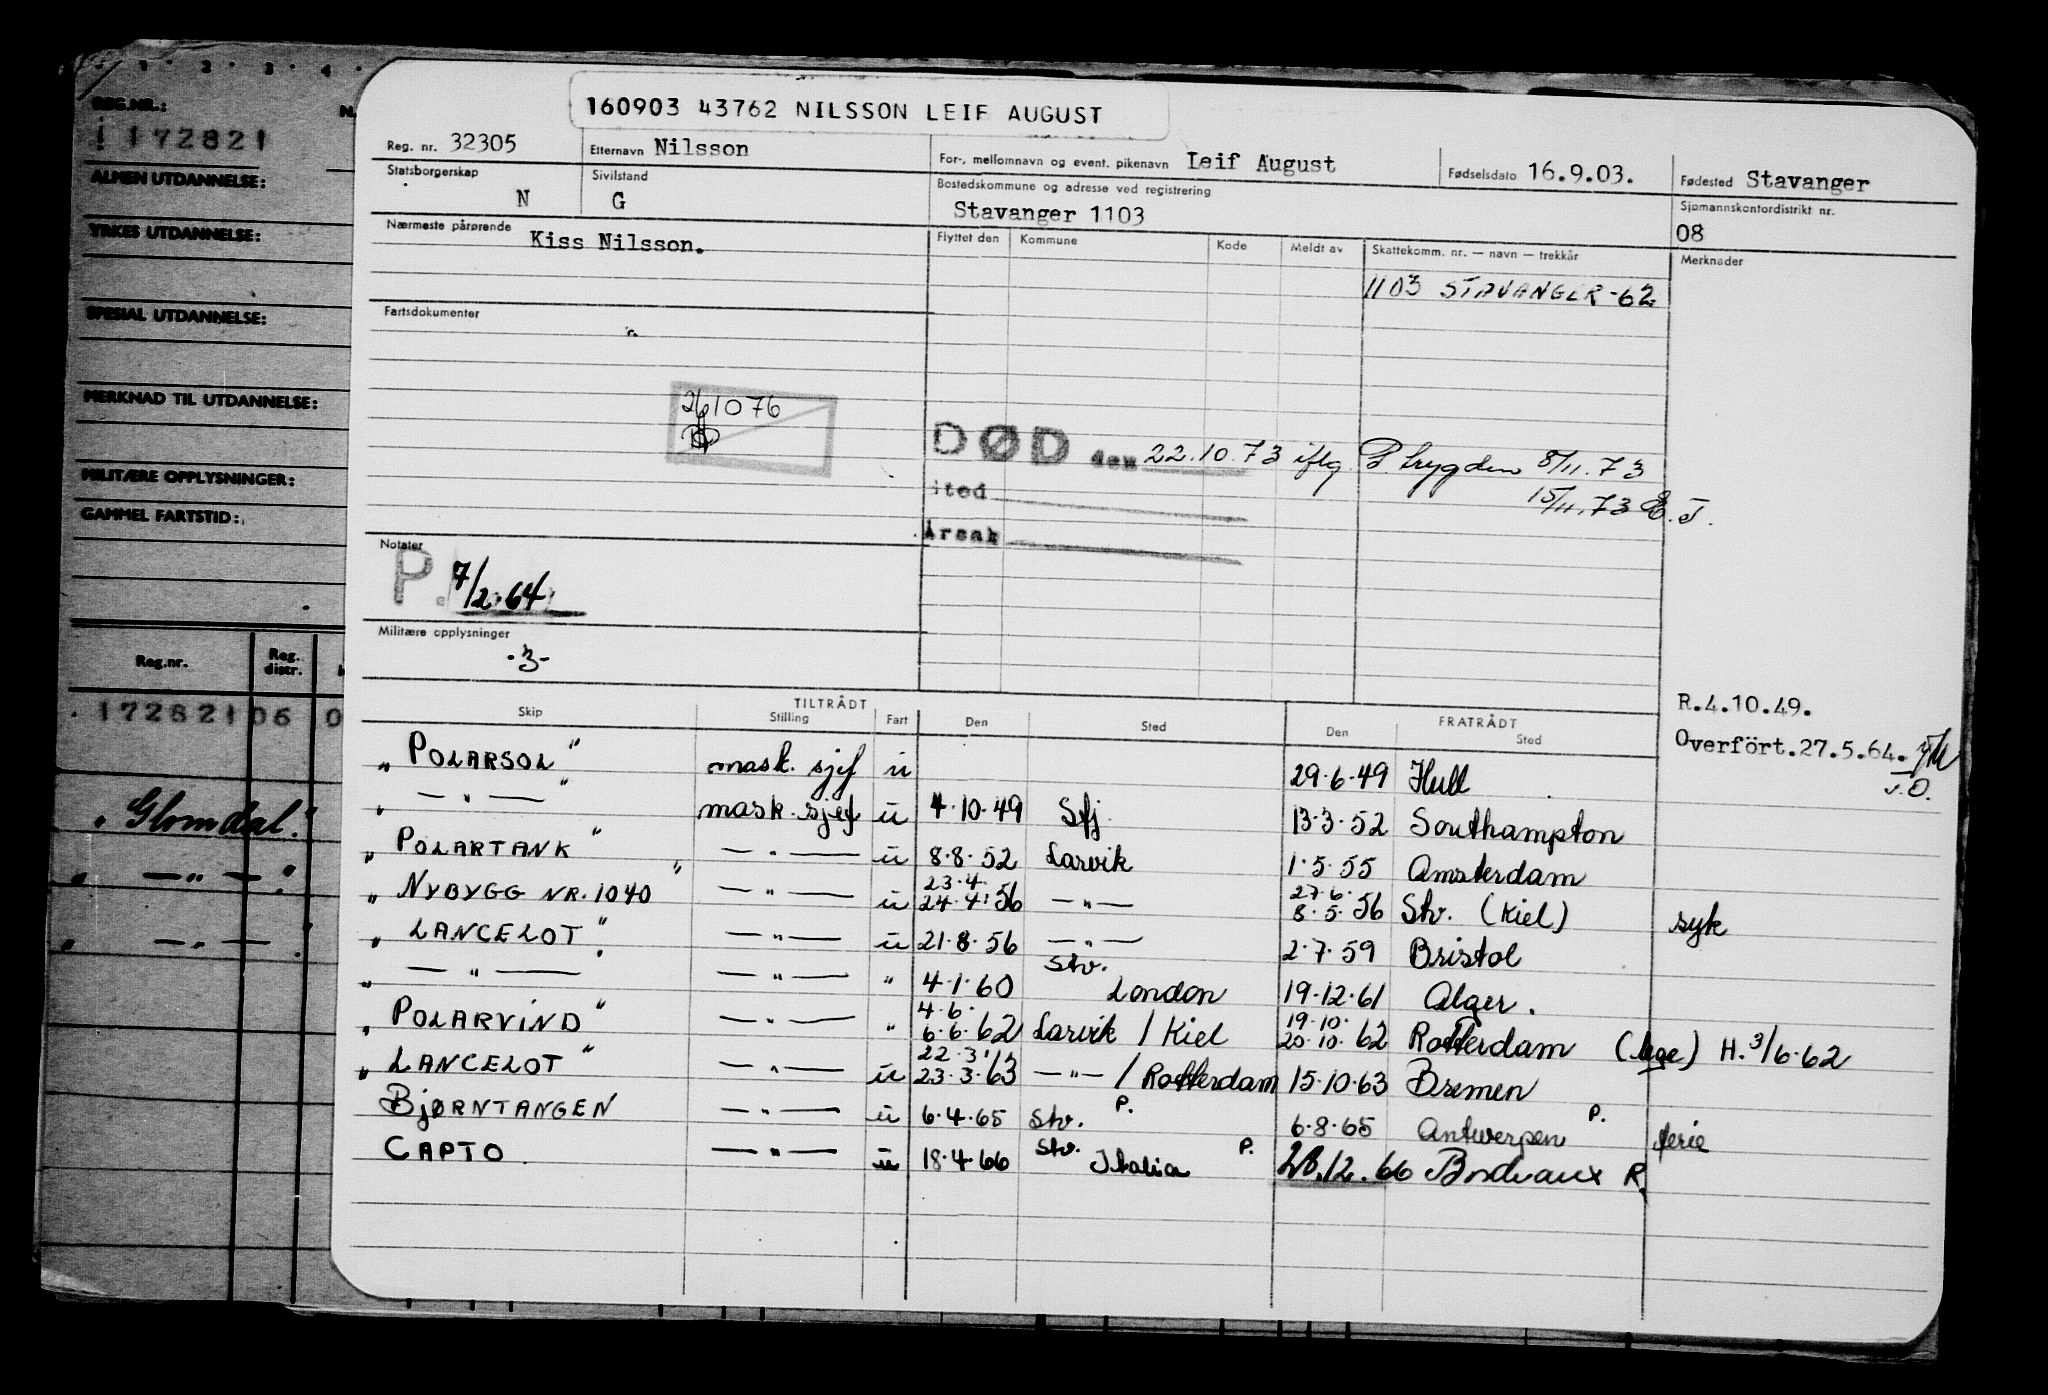 160903 43762 NILSSON LEIF AUGUST
Reg. nr. 32305 Etternavn Nilsson For-, mellomnavn og event. pikenavn Leif August Fødselsdato 16.9.03. Fødested Stavanger
Statsborgerskap N Sivilstand G Bostedskommune og adresse ved registrering Stavanger 1103 Sjømannskontordistrikt nr. 08
Nærmeste pårørende Kiss Nilsson. Flyttet den Kommune Kode Meldt av Skattekomm. nr. — navn — trekkår Merknader
1103 STAVANGER -62
Fartsdokumenter
261076
DØD den 22.10.73 iflg. P trygden 8/11.73
Sted 15/11.73 E.J.
Årsak
Notater
P. 7/2.64
Militære opplysninger
-3-
R.4.10.49.
Overfört.27.5.64.
J.O.
TILTRÅDT FRATRÅDT
Skip Stilling Fart Den Sted Den Sted
„ POLARSOL " mask. sjef u 29.6.49 Hull
„ — " — " mask. sjef u 4.10.49 Sfj. 13.3.52 Southampton
„ POLARTANK " — " — u 8.8.52 Larvik 1.5.55 Amsterdam
„ NYBYGG NR. 1040 " — " — u 23.4. 24.4.56 — " — 27.6. 8.5.56 Stv. (Kiel) syk
„ LANCELOT " — " — u 21.8.56 — " — 2.7.59 Bristol
„ — " — " — " — " 4.1.60 Stv. London 19.12.61 Alger.
„ POLARVIND " — " — " 4.6. 6.6.62 Larvik / Kiel 19.10. 20.10.62 Rotterdam (lege) H. 3/6.62
„ LANCELOT " — " — u 22.3. 23.3.63 — " — / Rotterdam 15.10.63 Bremen
BJØRNTANGEN — " — u 6.4.65 Stv. P. 6.8.65 Antwerpen P. ferie
CAPTO — " — u 18.4.66 Stv. Italia P. 28.12.66 Bordeaux R.
REG.NR.:
172821
ALMEN UTDANNELSE:
YRKES UTDANNELSE:
SPESIAL UTDANNELSE:
MERKNAD TIL UTDANNELSE:
MILITÆRE OPPLYSNINGER:
GAMMEL FARTSTID:
Reg.nr. Reg. distr.
172821 06 0
„ Glomdal."
„ — " — "
„ — " — "